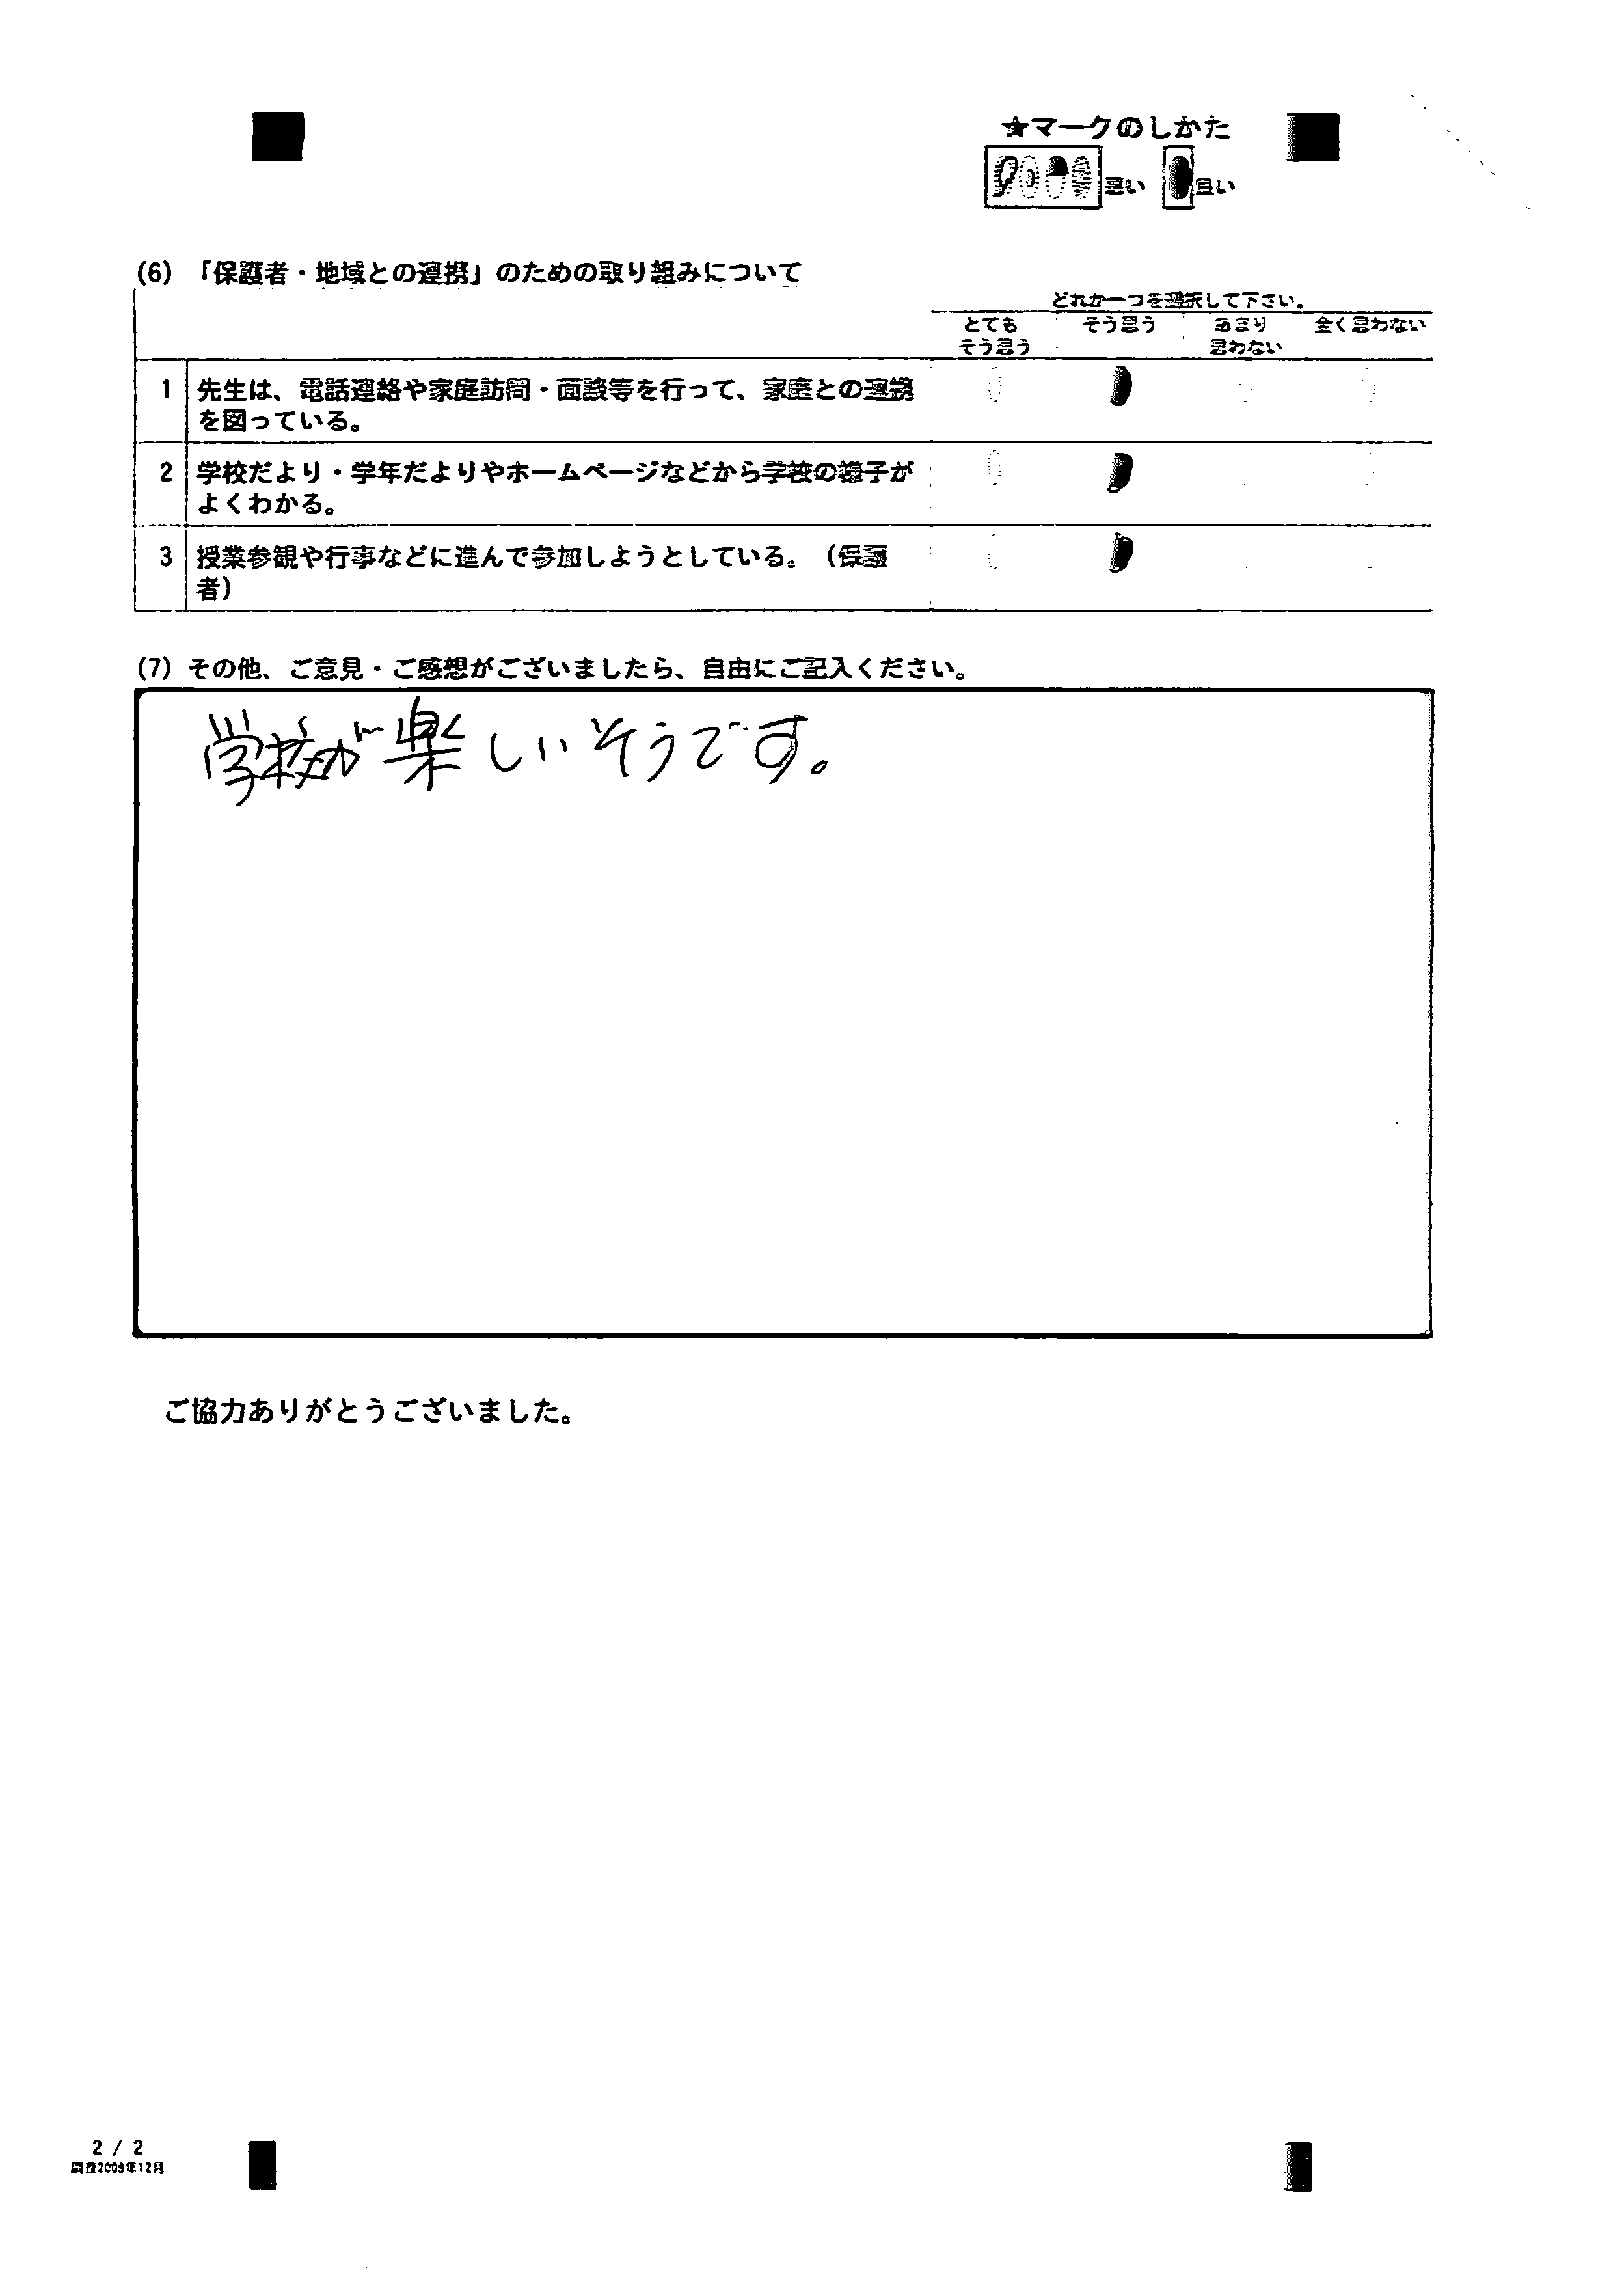 ★マークのしかた
悪い 良い
(6) 「保護者・地域との連携」のための取り組みについて
どれか一つを選択して下さい。
とても そう思う あまり 全く思わない
そう思う 思わない
1 先生は、電話連絡や家庭訪問・面談等を行って、家庭との連携
を図っている。
2 学校だより・学年だよりやホームページなどから学校の様子が
よくわかる。
3 授業参観や行事などに進んで参加しようとしている。（保護
者）
(7) その他、ご意見・ご感想がございましたら、自由にご記入ください。
学校が楽しいそうです。
ご協力ありがとうございました。
2 / 2